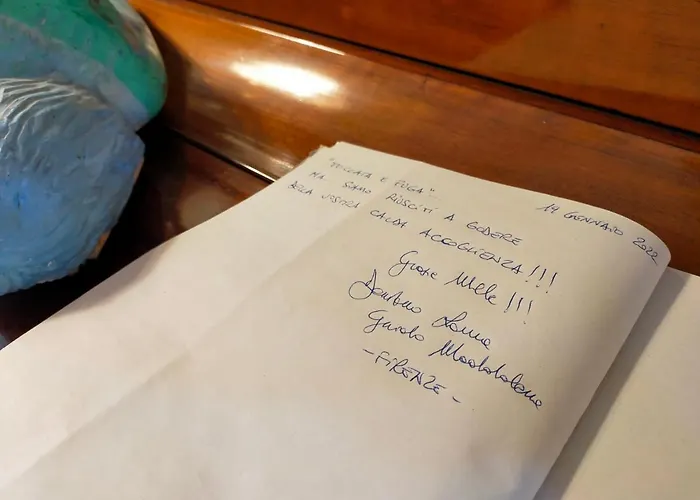 14 GENNAIO 2022
"TOCCATA E FUGA"
MA SIAMO RIUSCITI A GODERE
DELLA VOSTRA CALDA ACCOGLIENZA!!!
Grazie Mille!!!
Maddalena
-FIRENZE-